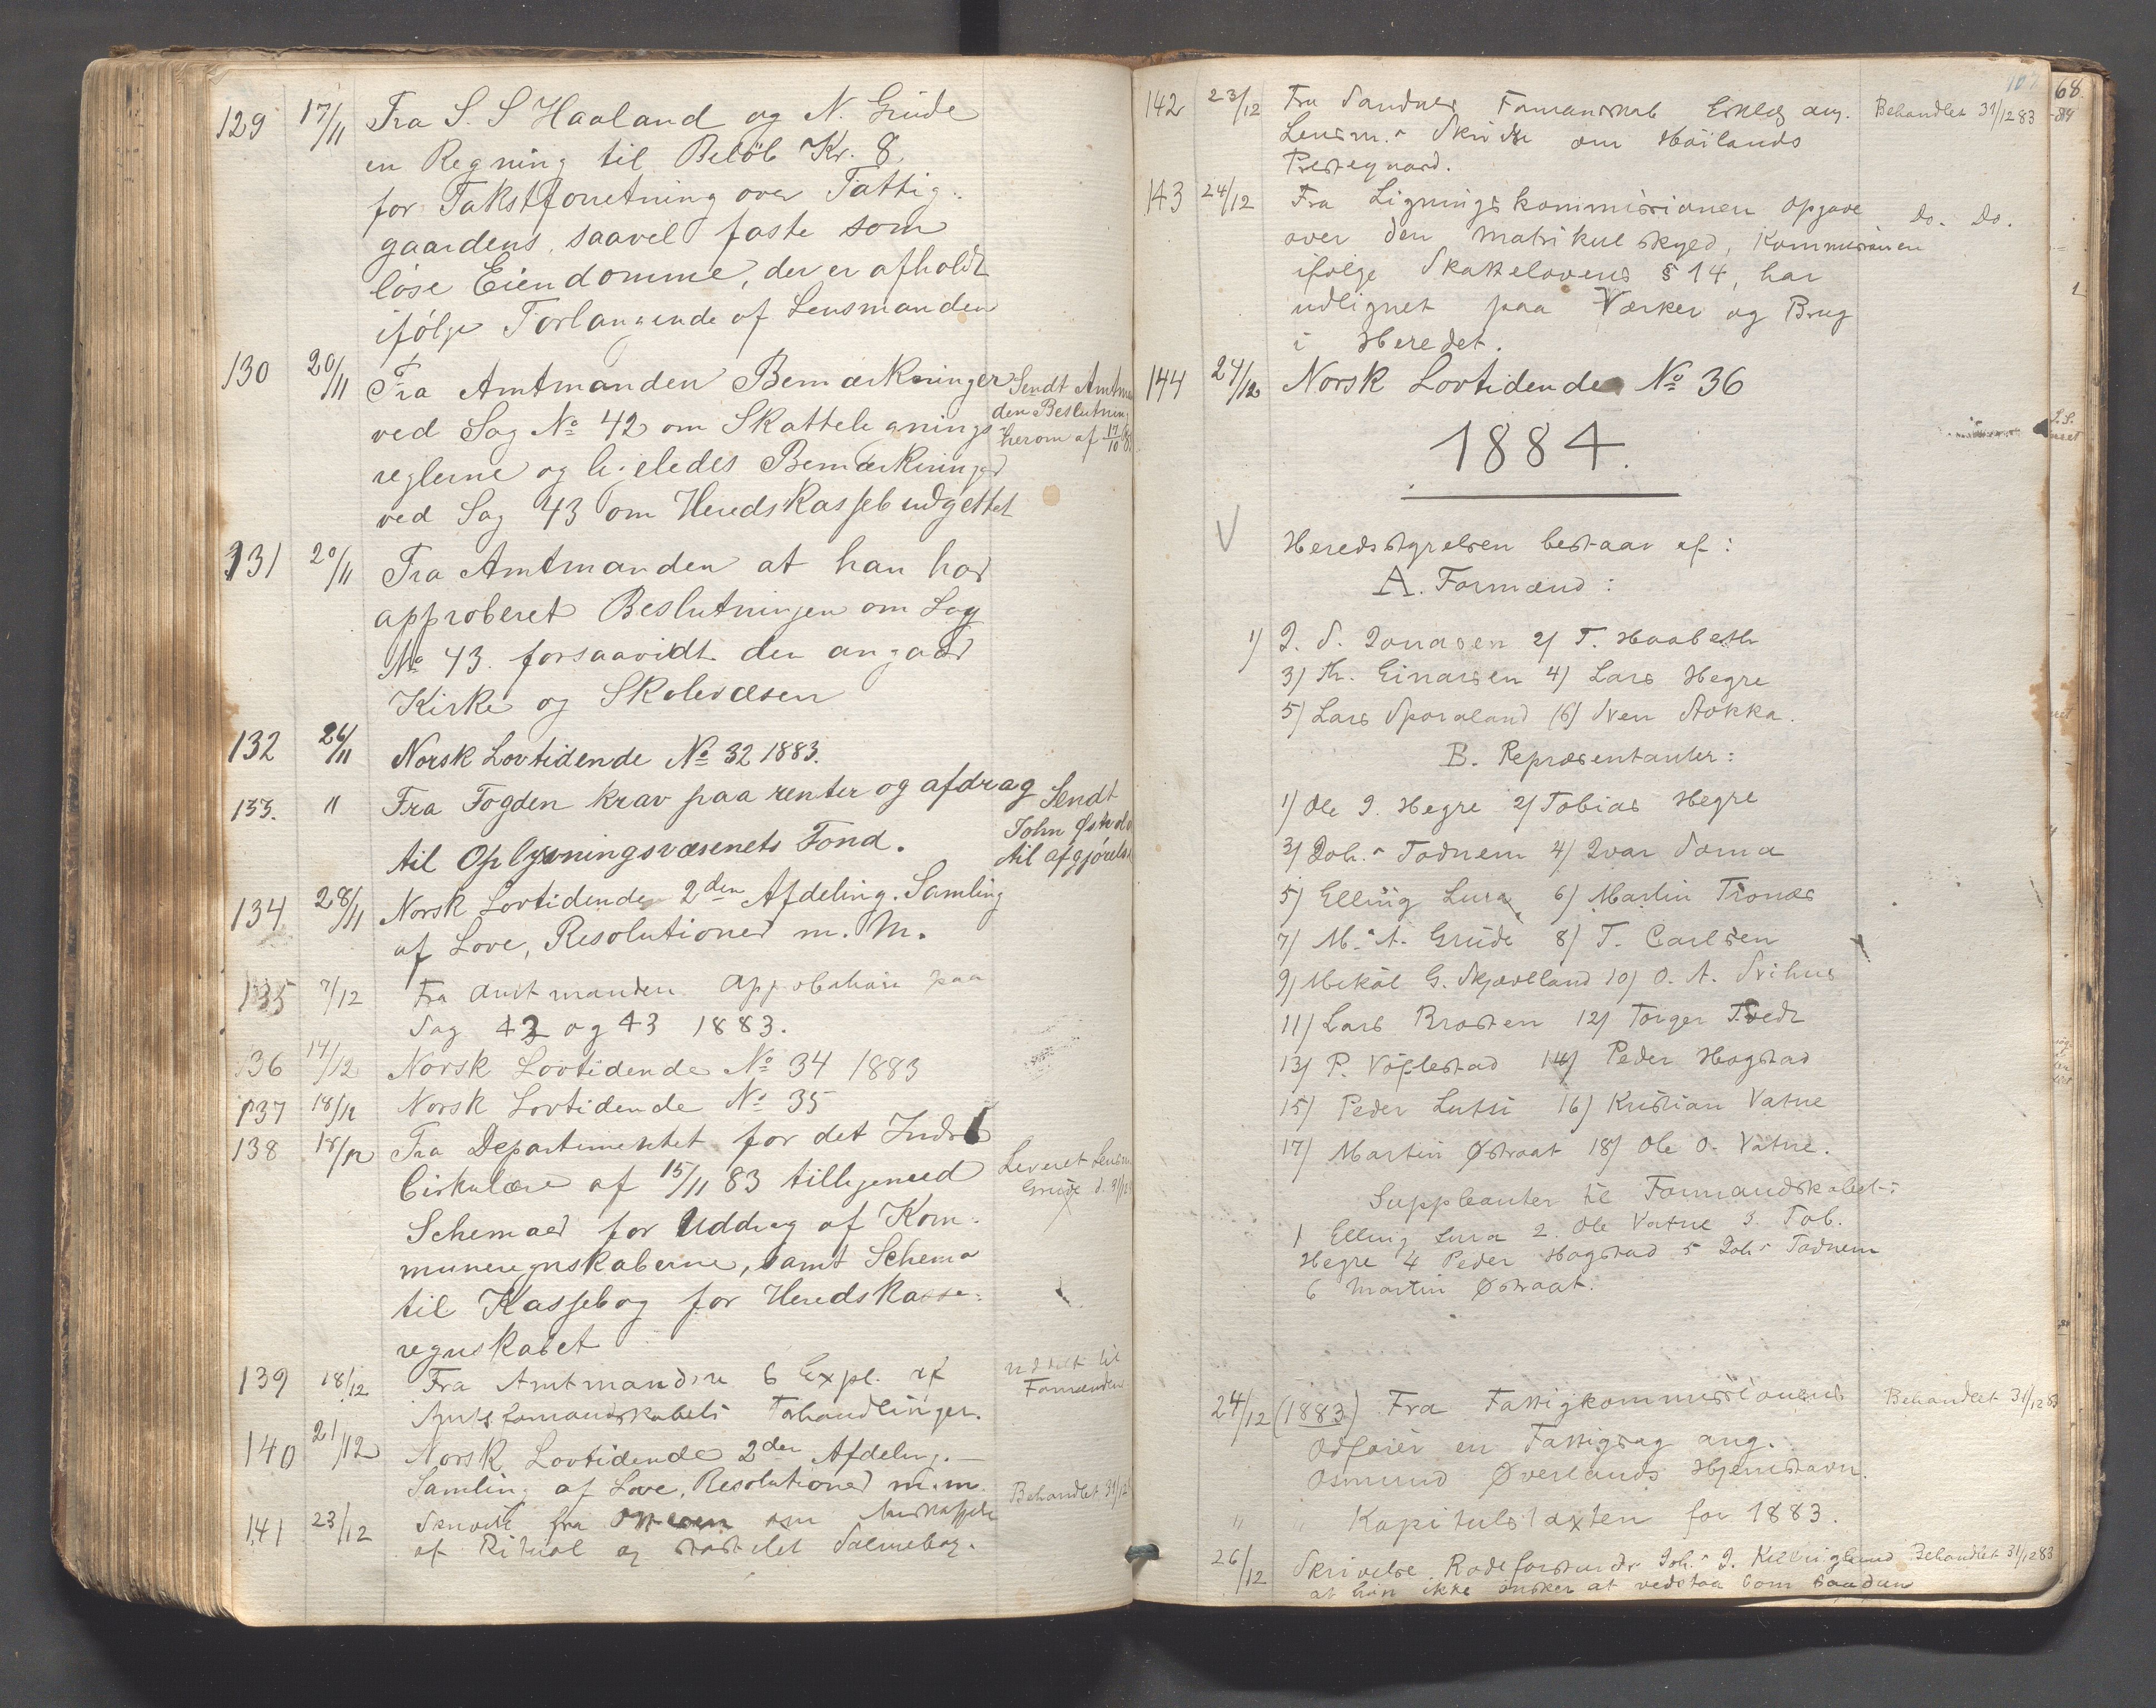 129 17/11 Fra S. S Haaland og N. Grude
en Regning til Beløb Kr. 8
for Takstforretning over Fattig-
gaardens, saavel faste som
løse Eiendomme, der er afholdt
ifølge Forlangende af Lensmanden
130 20/11 Fra Amtmanden Bemærkninger
ved Sag No 42 om Skattelignings-
reglerne og ligeledes Bemærkninger
ved Sag 43 om Heredskassebudgettet
Sendt Amtman
den Beslutning
herom af 17/10
131 20/11 Fra Amtmanden at han har
approberet Beslutningen om Sag
No 43. forsaavidt den angaar
Kirke og Skolevæsen
132 26/11 Norsk Lovtidende No 32 1883.
133. " Fra Fogden krav paa renter og afdrag
til Oplysningsvæsenets Fond.
Sendt
John
til afgjørelse
134 28/11 Norsk Lovtidende 2den Afdeling. Samling
af Love, Resolutioner m. M.
135 7/12 Fra Amtmanden Approbation paa
Sag 42 og 43 1883.
136 14/12 Norsk Lovtidende No 34 1883
137 18/12 Norsk Lovtidende No 35
138 18/12 Fra Departimentet for det Indre
Cirkulære af 15/11 83 tilligemed
Schemaer for Uddrag af Kom-
muneregnskaberne, samt Schema
til Kassebog for Heredskasse-
regnskabet
Leveret Lensm.
Grude d.
139 18/12 Fra Amtmanden 6 Expl. af
Amtsformandskabets Forhandlinger.
uddelt til
Formænden
140 21/12 Norsk Lovtidende 2den Afdeling.
Samling af Love, Resolutioner m.m.
141 23/12 fra om
af Ritual og Salmebog.
Behandlet 31/12
107
142 23/12 Fra Sandnes Formanskab Erklg ang.
Lensm.s Skridt om Høilands
Prestegaard.
Behandlet 31/12 83
143 24/12 Fra Ligningskommissionen Opgave
over den matrikulskyld, Kommissionen
ifølge Skattelovens § 14, har
udlignet paa Værker og Brug
i Heredet.
Do. Do.
144 24/12 Norsk Lovtidende No 36
1884.
V Heredsstyrelsen bestaar af:
A. Formænd:
1) J. S. Jonasen 2) T. Haabeth
3) Th. Einarsen 4) Lars Hegre
5) Lars Sporaland (6) Sven Stokka.
B. Repræsentanter:
1) Ole J. Hegre 2) Tobias Hegre
3) Joh.s Todnem 4) Ivar Soma
5) Elling Lura 6) Martin Tronæs
7) M. A. Grude 8) T. Carlsen
9) Mikal G. Skjæveland 10) O. A. Svihus
11) Lars Brosten 12) Torger Tvedt
13) P. Vølstad 14) Peder Hogstad
15) Peder Lutsi 16) Kristian Vatne
17) Martin Østraat 18) Ole O. Vatne.
Suppleanter til Formandskabet:
1 Elling Lura 2. Ole Vatne 3. Tob.
Hegre 4 Peder Hogstad 5 Joh.s Todnem
6 Martin Østraat.
24/12 (1883) Fra Fattigkommissionens
Ordfører en Fattigsag ang.
Osmund Øverlands Hjemstavn.
Behandlet 31/12 83
" " Kapitulstaxten for 1883.
26/12 Skrivelse Rodeforstander Joh.s J.
at han ikke ønsker at vedstaa som saadan
Behandlet 31/12 83
68.